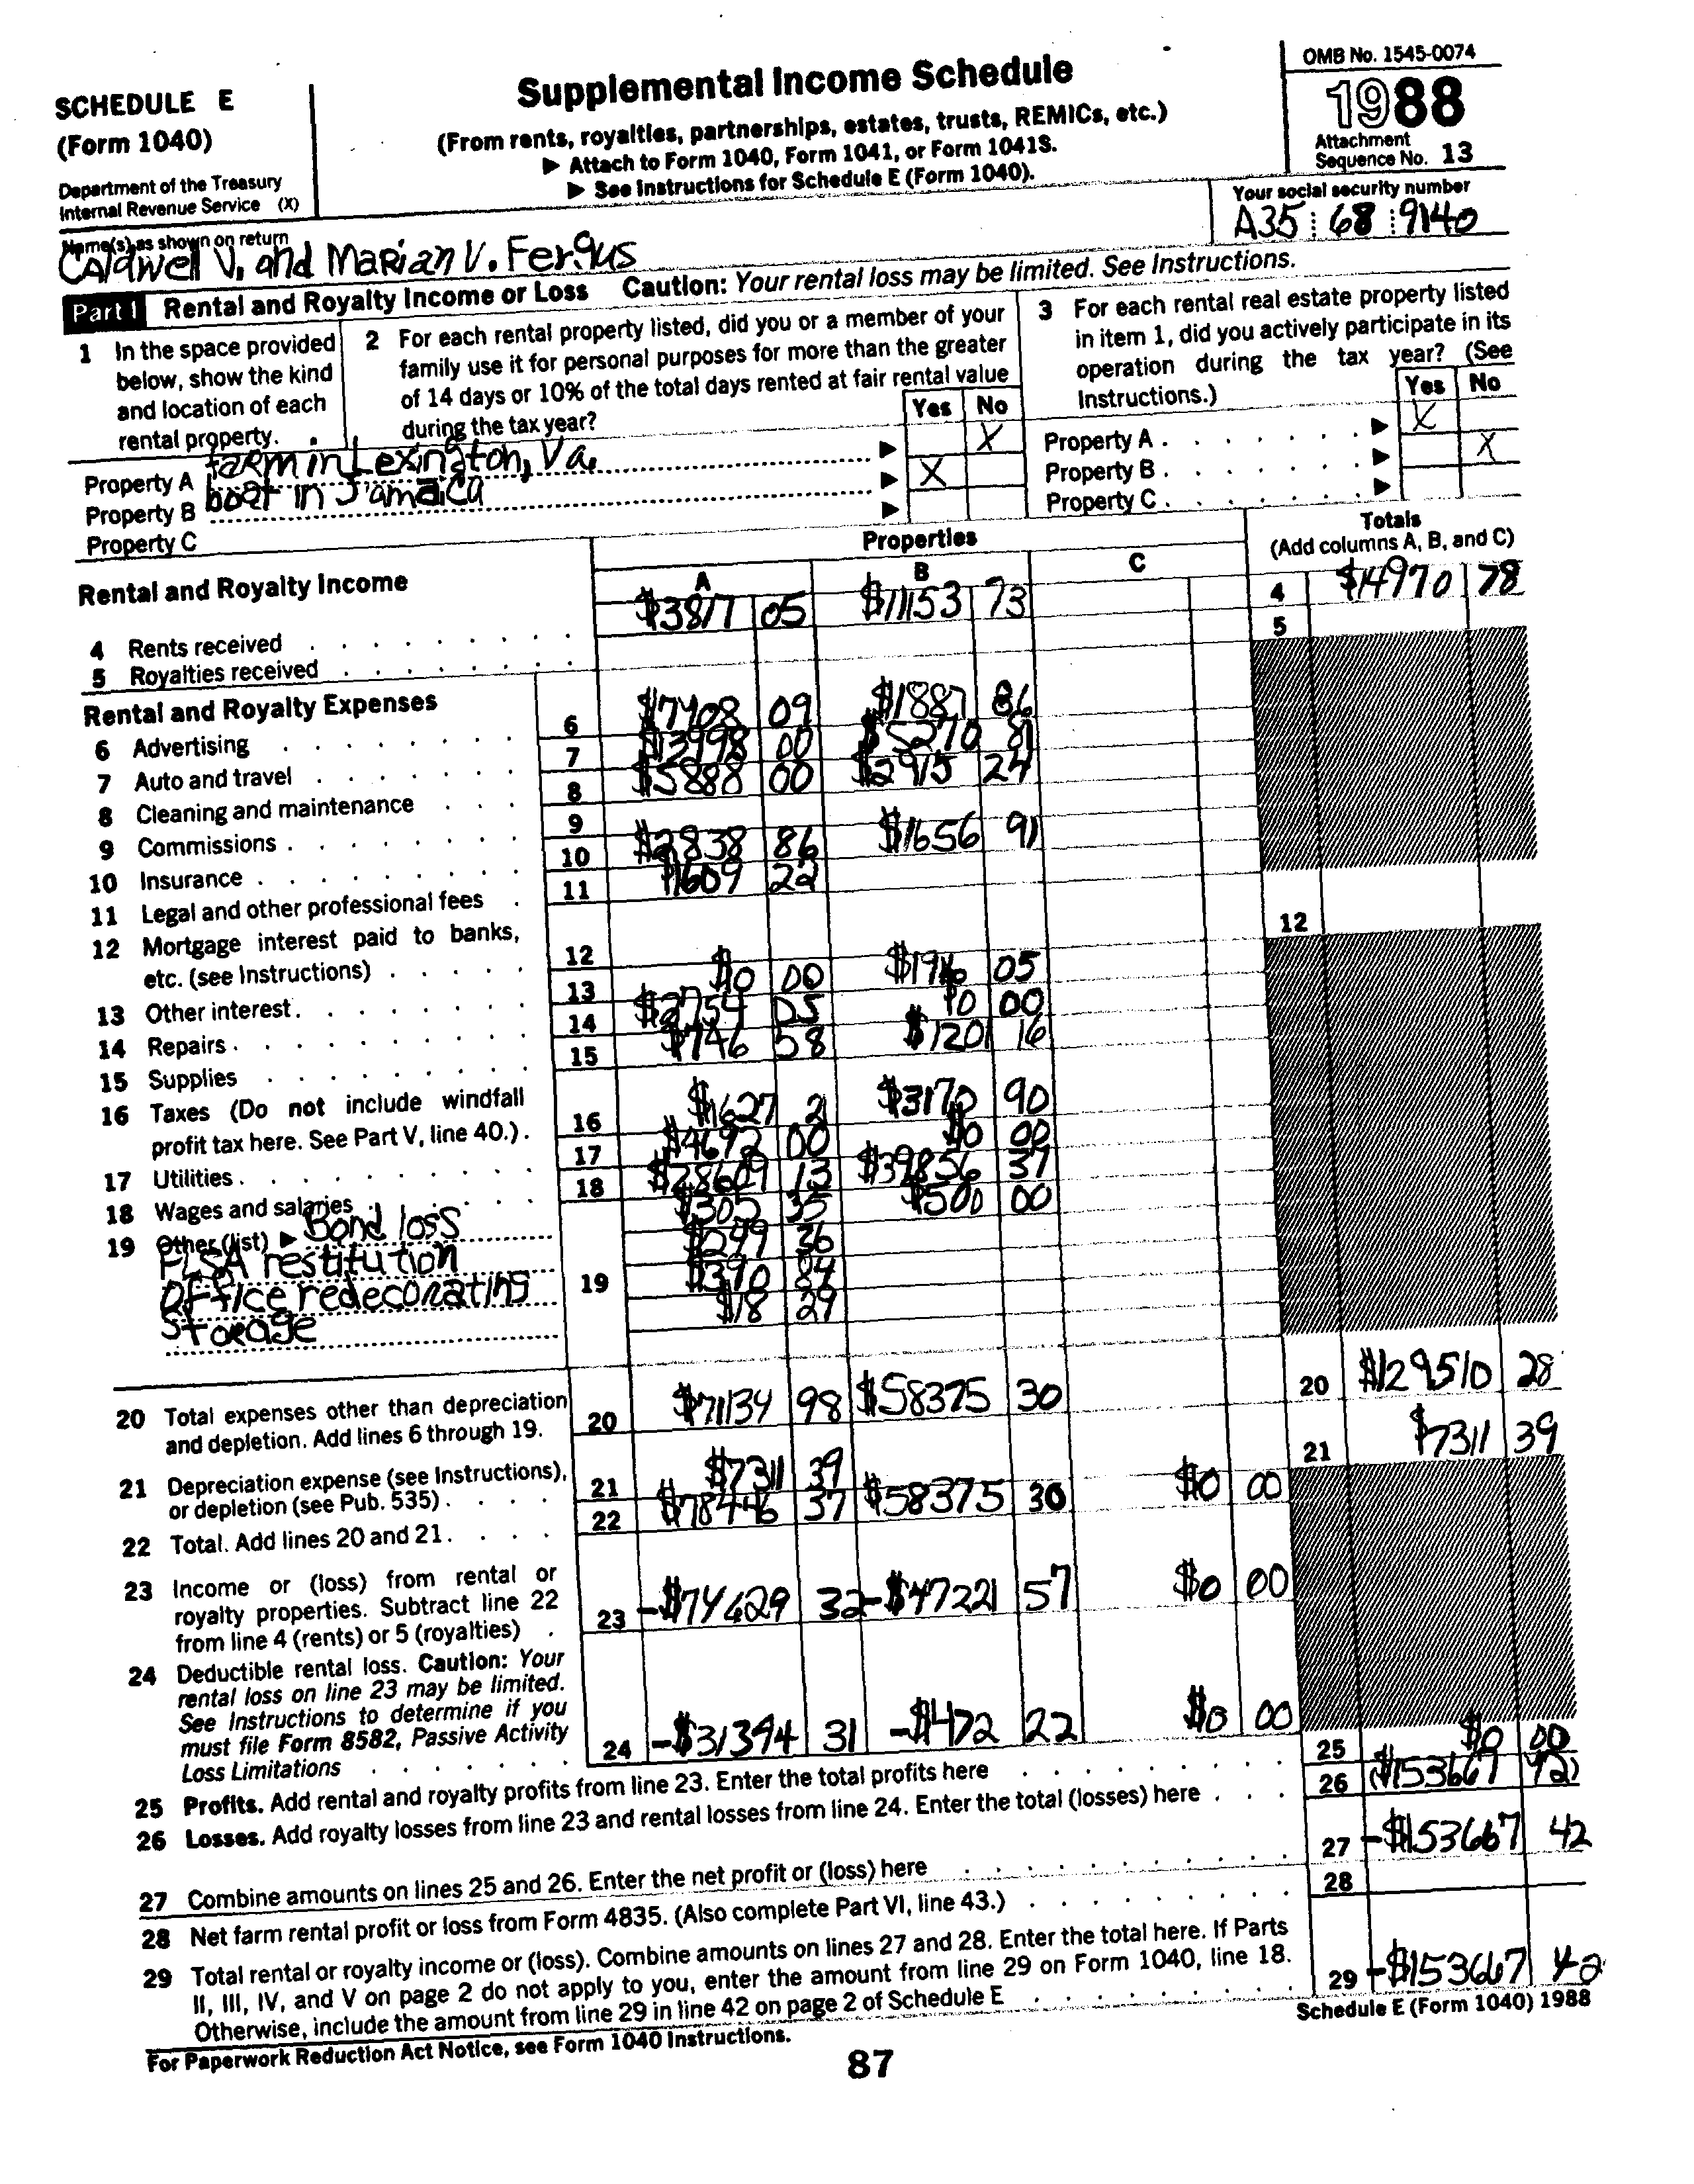 SCHEDULE E
(Form 1040)
Department of the Treasury
Internal Revenue Service (X)
Supplemental Income Schedule
(From rents, royalties, partnerships, estates, trusts, REMICs, etc.)
▶ Attach to Form 1040, Form 1041, or Form 1041S.
▶ See Instructions for Schedule E (Form 1040).
OMB No. 1545-0074
1988
Attachment
Sequence No. 13
Name(s) as shown on return
Caldwell V. and Marian V. Fergus
Your social security number
A35 68 9140
Part I Rental and Royalty Income or Loss Caution: Your rental loss may be limited. See Instructions.
1 In the space provided
below, show the kind
and location of each
rental property.
2 For each rental property listed, did you or a member of your
family use it for personal purposes for more than the greater
of 14 days or 10% of the total days rented at fair rental value
during the tax year?
Yes No
3 For each rental real estate property listed
in item 1, did you actively participate in its
operation during the tax year? (See
Instructions.)
Yes No
Property A farm in Lexington, Va. ▶ X Property A ▶ X
Property B boat in Jamaica ▶ X Property B ▶ X
Property C ▶ Property C ▶
Rental and Royalty Income
Properties
A B C
Totals
(Add columns A, B, and C)
4 Rents received $3817 05 $11153 73 4 $14970 78
5 Royalties received 5
Rental and Royalty Expenses
6 Advertising 6 $7408 09 $1887 86
7 Auto and travel 7 $13998 00 $5270 81
8 Cleaning and maintenance 8 $5888 00 $2915 24
9 Commissions 9
10 Insurance 10 $2838 86 $1656 91
11 Legal and other professional fees 11 $1609 22
12 Mortgage interest paid to banks,
etc. (see Instructions) 12 12
13 Other interest 13 $0 00 05
14 Repairs 14 $2754 05 $0 00
15 Supplies 15 $746 58 $1201 16
16 Taxes (Do not include windfall
profit tax here. See Part V, line 40.) 16 $1627 21 $3170 90
17 Utilities 17 $4692 00 $0 00
18 Wages and salaries 18 $28609 13 $39856 37
19 Other (list) ▶ Bond loss $305 35 $500 00
FLSA restitution $299 36
Office redecorating 19 $390 84
Storage $18 29
20 Total expenses other than depreciation
and depletion. Add lines 6 through 19. 20 $71134 98 $58375 30 20 $129510 28
21 Depreciation expense (see Instructions),
or depletion (see Pub. 535) 21 $7311 39 21 $7311 39
22 Total. Add lines 20 and 21 22 $78446 37 $58375 30 $0 00
23 Income or (loss) from rental or
royalty properties. Subtract line 22
from line 4 (rents) or 5 (royalties) 23 -$74629 32 -$47221 57 $0 00
24 Deductible rental loss. Caution: Your
rental loss on line 23 may be limited.
See Instructions to determine if you
must file Form 8582, Passive Activity
Loss Limitations 24 -$31394 31 -$472 22 $0 00
25 Profits. Add rental and royalty profits from line 23. Enter the total profits here 25 $0 00
26 Losses. Add royalty losses from line 23 and rental losses from line 24. Enter the total (losses) here 26 ($153667 42)
27 Combine amounts on lines 25 and 26. Enter the net profit or (loss) here 27 -$153667 42
28 Net farm rental profit or loss from Form 4835. (Also complete Part VI, line 43.) 28
29 Total rental or royalty income or (loss). Combine amounts on lines 27 and 28. Enter the total here. If Parts
II, III, IV, and V on page 2 do not apply to you, enter the amount from line 29 on Form 1040, line 18.
Otherwise, include the amount from line 29 in line 42 on page 2 of Schedule E 29 -$153667 42
For Paperwork Reduction Act Notice, see Form 1040 Instructions.
Schedule E (Form 1040) 1988
87